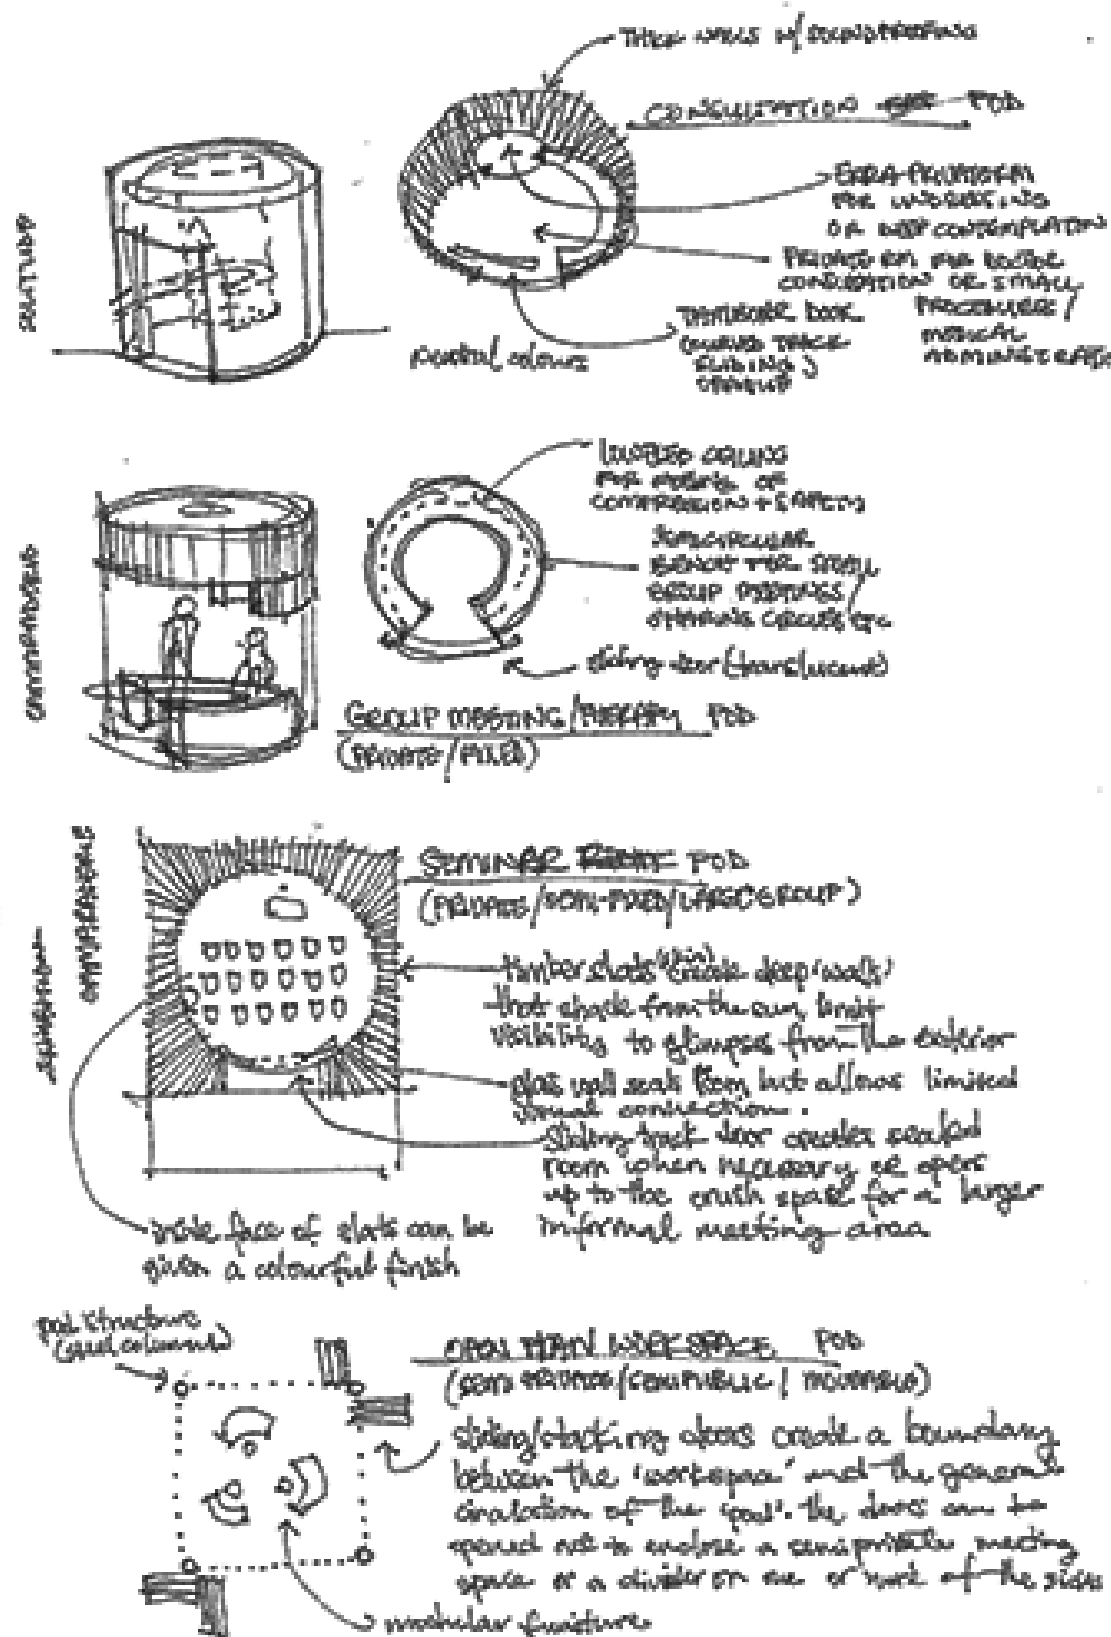 THICK WALLS W/ SOUNDPROOFING
CONSULTATION POD
EXTRA PRIVATE RM
FOR UNDRESSING
OR DEEP CONTEMPLATION
PRIVATE RM FOR DOCTOR
CONSULTATION OR SMALL
PROCEDURES/
MEDICAL
ADMINISTRATN
TAMBOUR DOOR
(CURVED TRACK
SLIDING)
neutral colours
SOLITUDE
CEILING
FOR FEELING OF
COMPRESSION + SAFETY
SEMICIRCULAR
BENCH FOR SMALL
GROUP MEETINGS/
SHARING CIRCLES/ETC
sliding door (translucent)
GROUP MEETING/THERAPY POD
(PRIVATE/FIXED)
CAMARADERIE
CAMARADERIE
SEMINAR POD
(PRIVATE/SEMI-FIXED/LARGE GROUP)
timber slats (skin) create deep 'walls'
that shade from the sun, limit
visibility to glimpses from the exterior
glass wall seals room but allows limited
visual connection.
sliding track door creates sealed
room when necessary or opens
up to the crush space for a larger
informal meeting area
inside face of slats can be
given a colourful finish
pod structure
(steel columns)
OPEN PLAN WORKSPACE POD
(SEMI PRIVATE/SEMI PUBLIC/ MOVEABLE)
sliding/stacking doors create a boundary
between the 'workspace' and the general
circulation of the 'pod'. the doors can be
opened out to enclose a semiprivate meeting
space or a divider on one or more of the sides
modular furniture